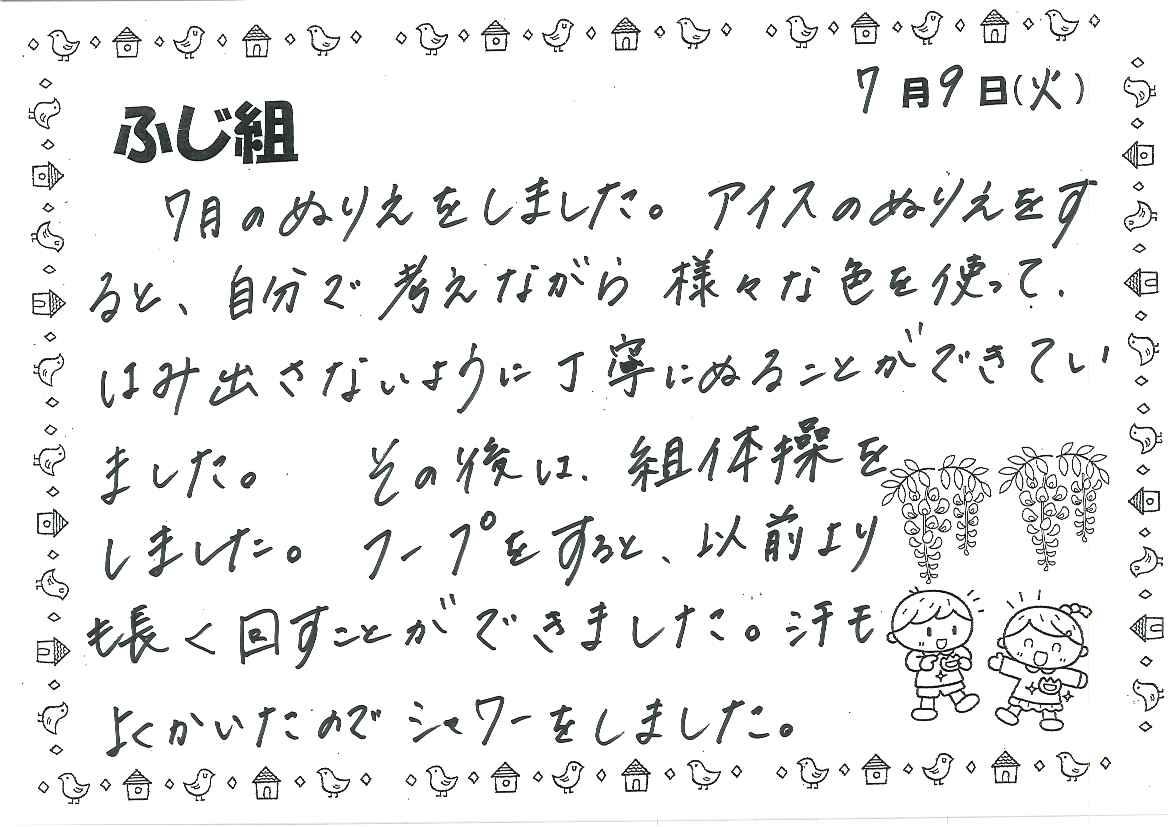 7月9日(火)
ふじ組
7月のぬりえをしました。アイスのぬりえをす
ると、自分で考えながら様々な色を使って、
はみ出さないように丁寧にぬることができてい
ました。 その後は、組体操を
しました。 フープをすると、以前より
も長く回すことができました。汗も
よくかいたのでシャワーをしました。